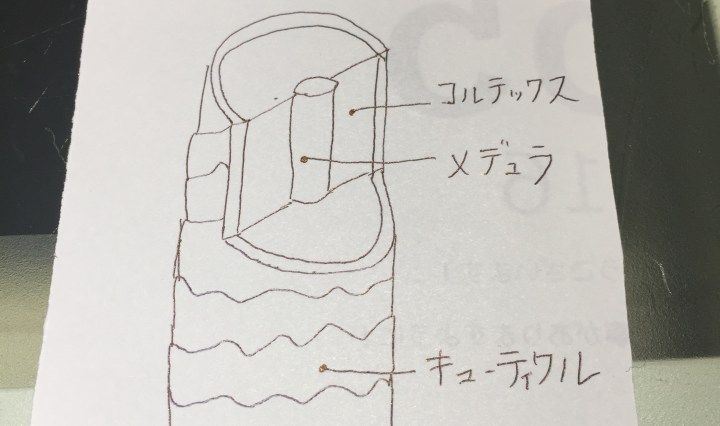 コルテックス
メデュラ
キューティクル